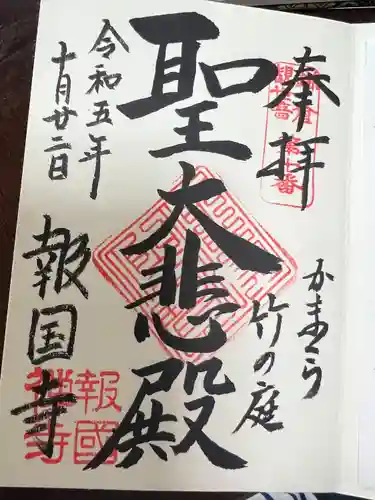 奉拝
かまくら
竹の庭
聖大悲殿
令和五年
十月廿二日
報国寺
報國
禅寺